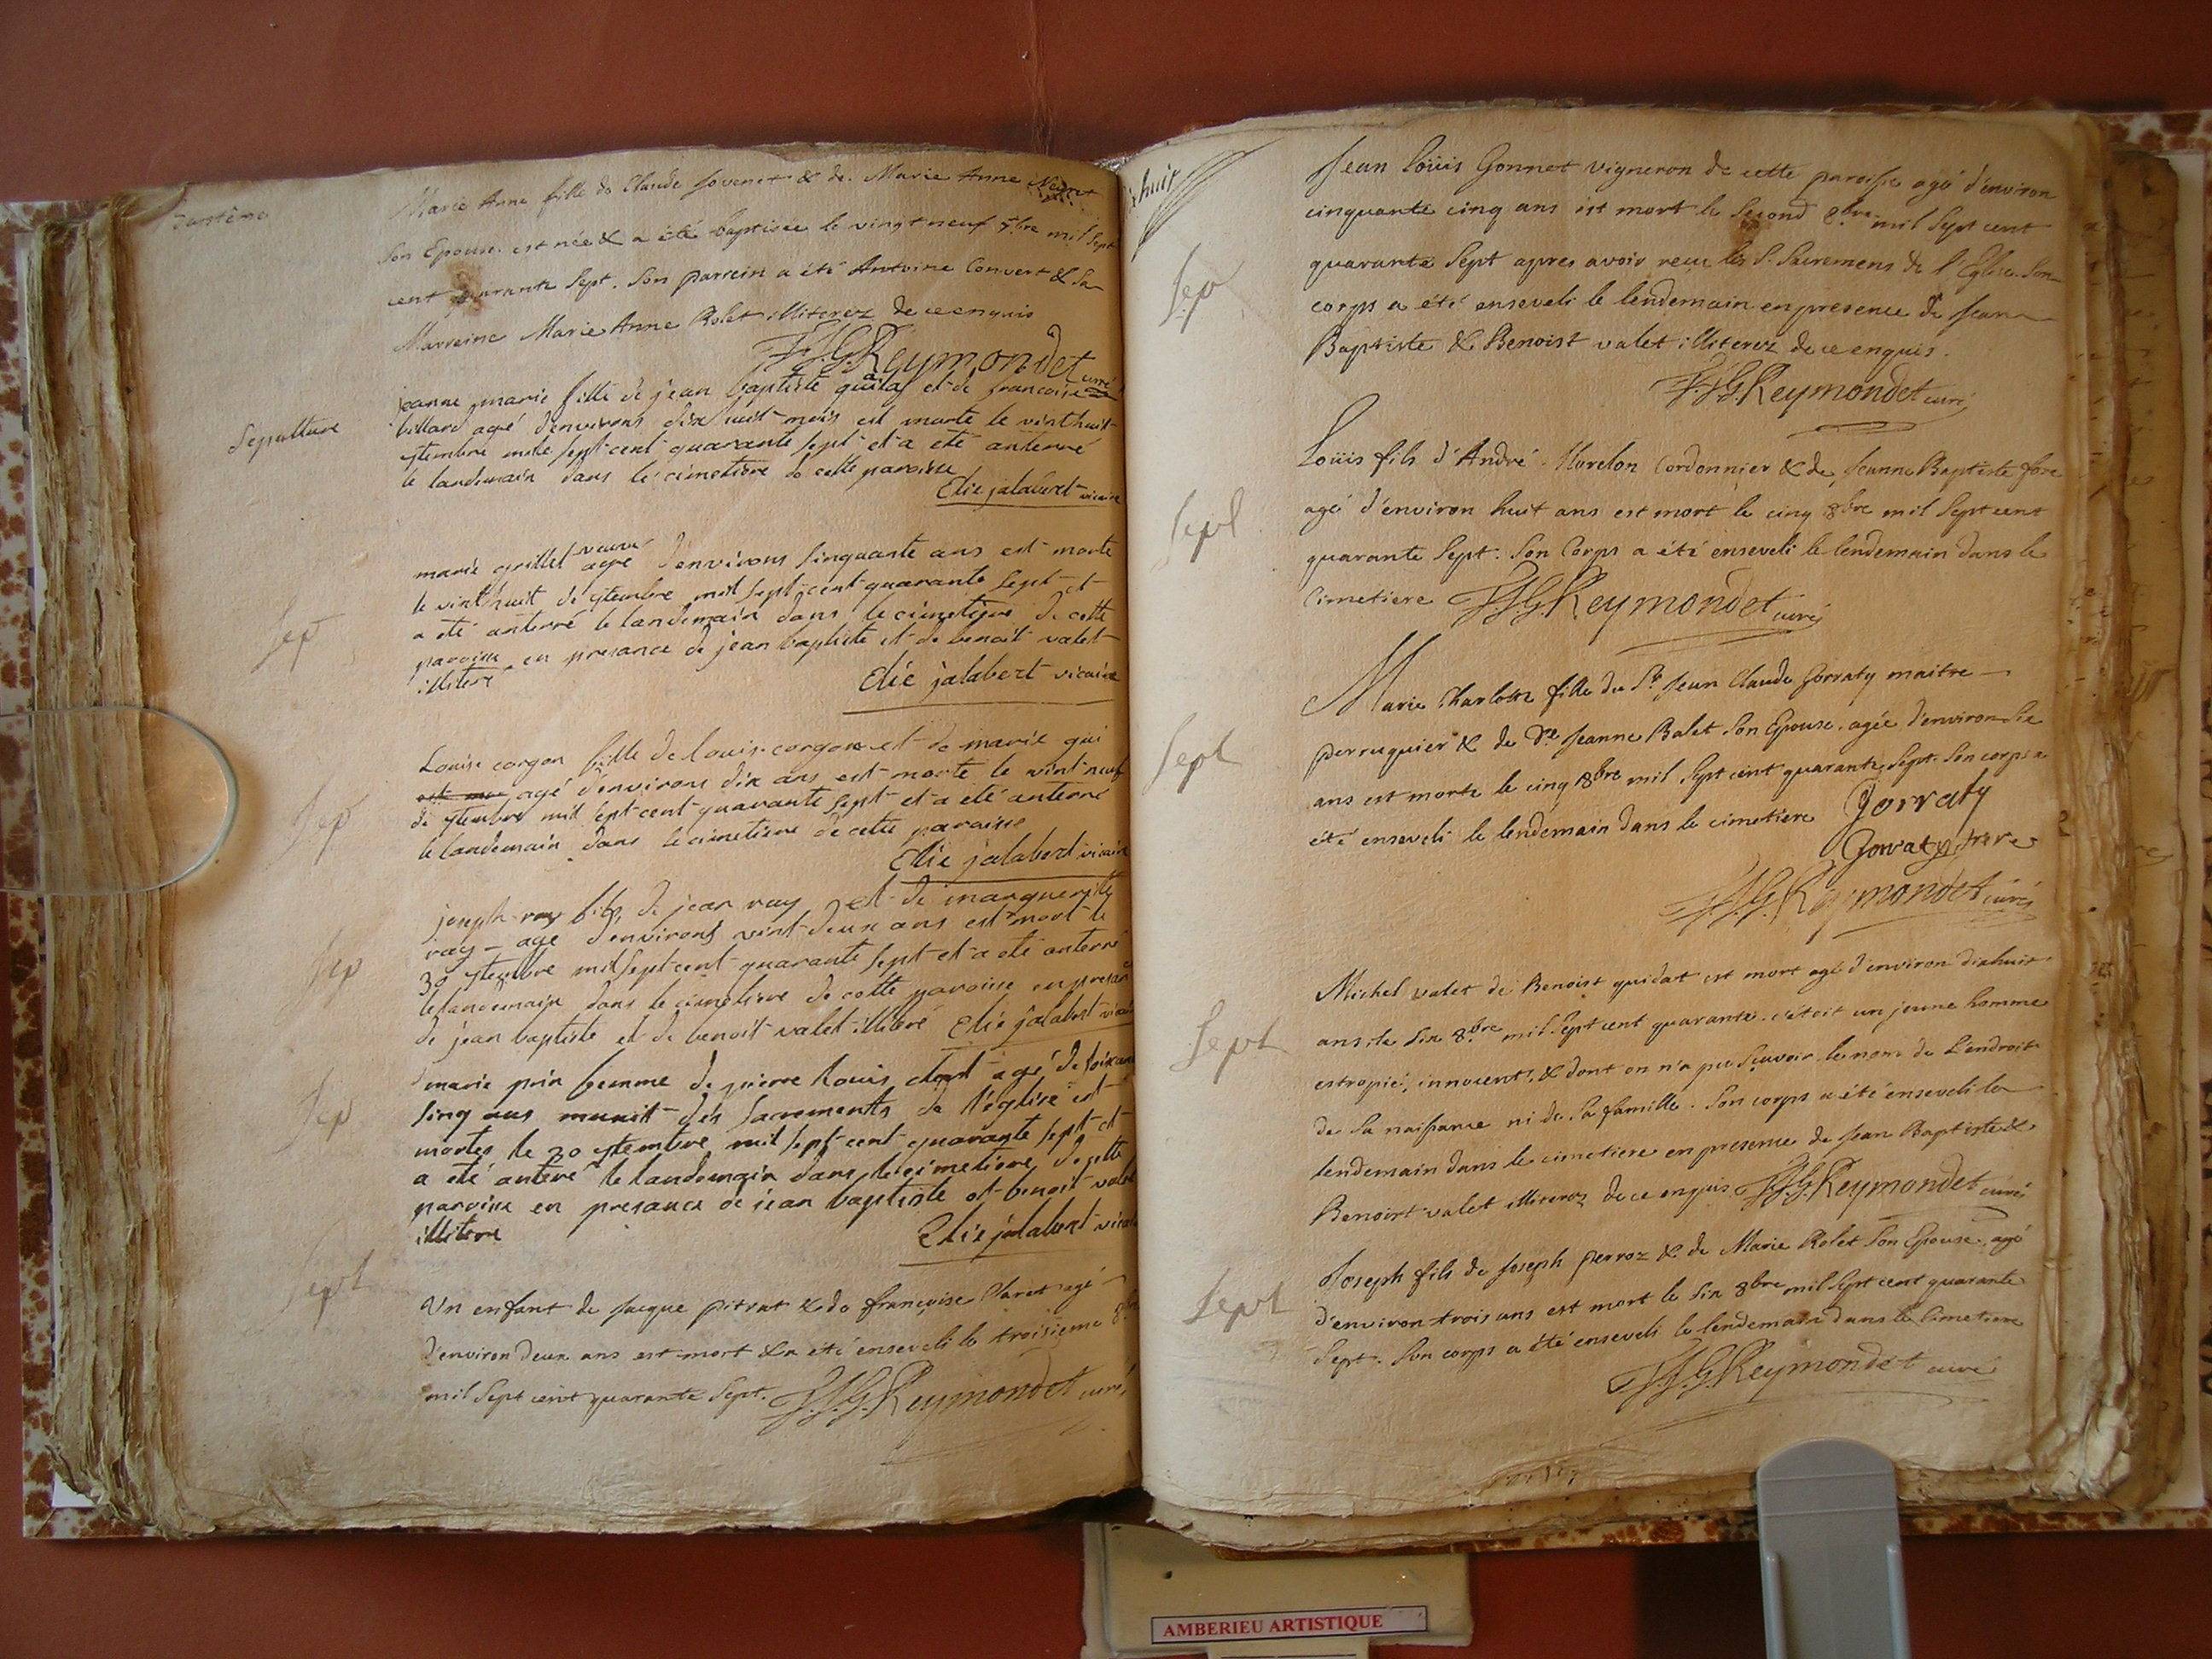 Marie Anne fille de Claude Jovenet & de Marie Anne
son Epouse est née & a été baptisée le vingt neuf 7bre mil sept
cent quarante sept. Son parrein a été Antoine Convert & Sa
Marreine Marie Anne Rolet illiterez de ce enquis
F.J.G. Reymondet curé
Sepulture
jeanne marie fille de jean baptiste et de francoise
billard agé denvirons dix huit mois est morte le vint huit
7tembre mile sept cent quarante sept et a eté anterré
le landemain dans le cimetiere de cette paroisse
Elie jalabert vicaire
Sep
marie grillet veuve agé denvirons sinquante ans est morte
le vint huit de 7tembre mil sept cent quarante sept et
a eté anterré le landemain dans le cimetiere de cette
paroisse en presance de jean baptiste et de benoit valet
illiteré
Elie jalabert vicaire
Sep
Louise corgon fille de louis corgon et de marie qui
agé denvirons dix ans est morte le vint neuf
de 7tembre mil sept cent quarante sept et a eté anterré
le landemain dans le cimetiere de cette paroisse
Elie jalabert vicaire
Sep
joseph ray fils de jean ray et de marguerite
ray agé denvirons vint deux ans est mort le
30 7tembre mil sept cent quarante sept et a eté anterré
le landemain dans le cimetiere de cette paroisse en presan
de jean baptiste et de benoit valet illiteré Elie jalabert vicai
Sep
marie prin femme de pierre louis agé de soixan
sinq ans munit des sacrements de l'église est
mortes le 30 7tembre mil sept cent quarante sept et
a eté anteré le landemain dans le cimetiere de cette
paroisse en presance de jean baptiste et benoit valet
illitere
Elie jalabert vicai
Sept
Un enfant de Jacque pitrat & de françoise Claret agé
d'environ deux ans est mort & a été enseveli le troisieme 8bre
mil sept cent quarante sept. F.J.G. Reymondet curé
huit
Sep
Jean Loüis Gonnet vigneron de cette paroisse agé d'environ
cinquante cinq ans est mort le second 8bre mil sept cent
quarante sept apres avoir reçu les S. Sacremens de l'Eglise. Son
corps a été enseveli le lendemain en presence de Jean
Baptiste & Benoist valet illiterez de ce enquis.
F.J.G. Reymondet curé
Sept
Loüis fils d'André Morelon Cordonnier & de Jeanne Baptiste fore
agé d'environ huit ans est mort le cinq 8bre mil sept cent
quarante sept. Son Corps a été enseveli le lendemain dans le
Cimetiere F.J.G. Reymondet curé
Sept
Marie Charlotte fille du Sr. Jean Claude Gorraty maitre
perruquier & de De Jeanne Balet son Epouse. agée d'environ six
ans est morte le cinq 8bre mil sept cent quarante sept. Son corps a
été enseveli le lendemain dans le cimetiere Gorraty
Gorraty frere
F.J.G. Reymondet curé
Sept
Michel valet de Benoist guidat est mort agé d'environ dix huit
ans le six 8bre mil sept cent quarante. c'étoit un jeune homme
estropié, innocent, & dont on n'a pu sçavoir le nom de l'endroit
de sa naissance ni de sa famille. Son corps a été enseveli le
lendemain dans le cimetiere en presence de Jean Baptiste &
Benoist valet illiterez de ce enquis F.J.G. Reymondet curé
Sept
Joseph fils de Joseph perroz & de Marie Rolet son Epouse agé
d'environ trois ans est mort le six 8bre mil sept cent quarante
sept. Son corps a été enseveli le lendemain dans le Cimetiere
F.J.G. Reymondet curé
AMBERIEU ARTISTIQUE